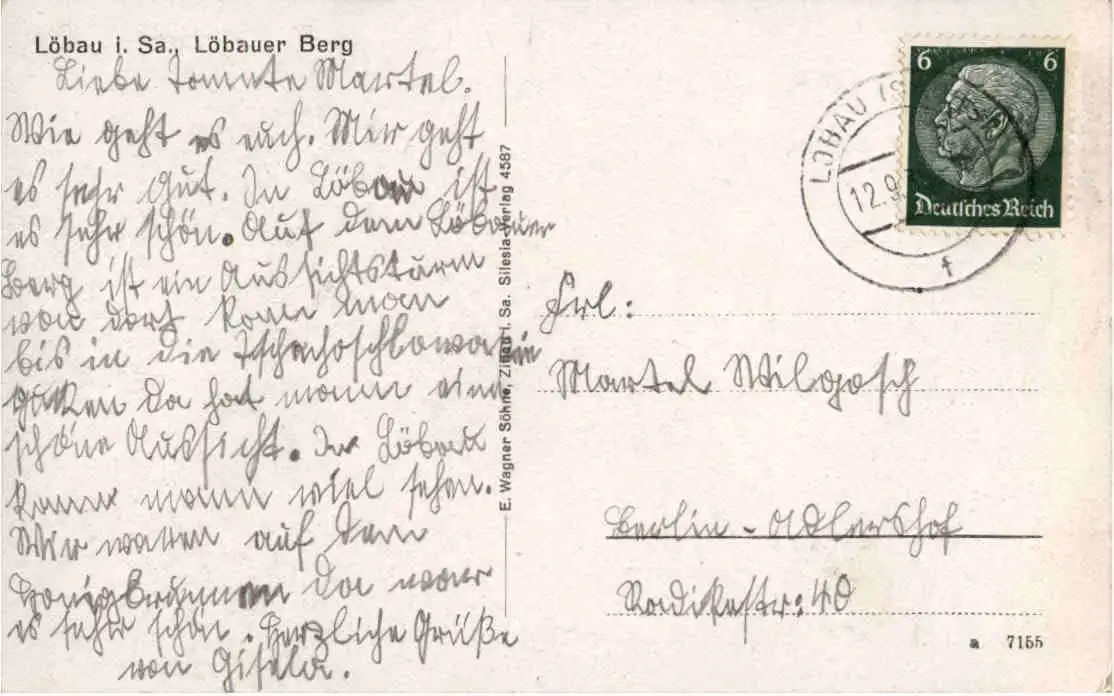 Löbau i. Sa., Löbauer Berg
Liebe Tannte Martel.
Wie geht es euch. Mir geht
es sehr gut. In Löbau ist
es sehr schön. Auf dem Löbauer
Berg ist ein Aussichtsturm
von dort kann man
bis in die Tschechoschlowakein
guken da hat mann eine
schöne Aussicht. In Löbau
kann mann viel sehen.
Wir waren auf dem
Honigbrunnen da war
es sehr schön. Herzliche Grüße
von Gisela.
E. Wagner Söhne, Zittau i. Sa. Silesia-Verlag 4587
6 6
Deutsches Reich
LÖBAU (S
12.9
f
Frl:
Martel Wilgosch
Berlin-Adlershof
Radikestr: 40
a 7155